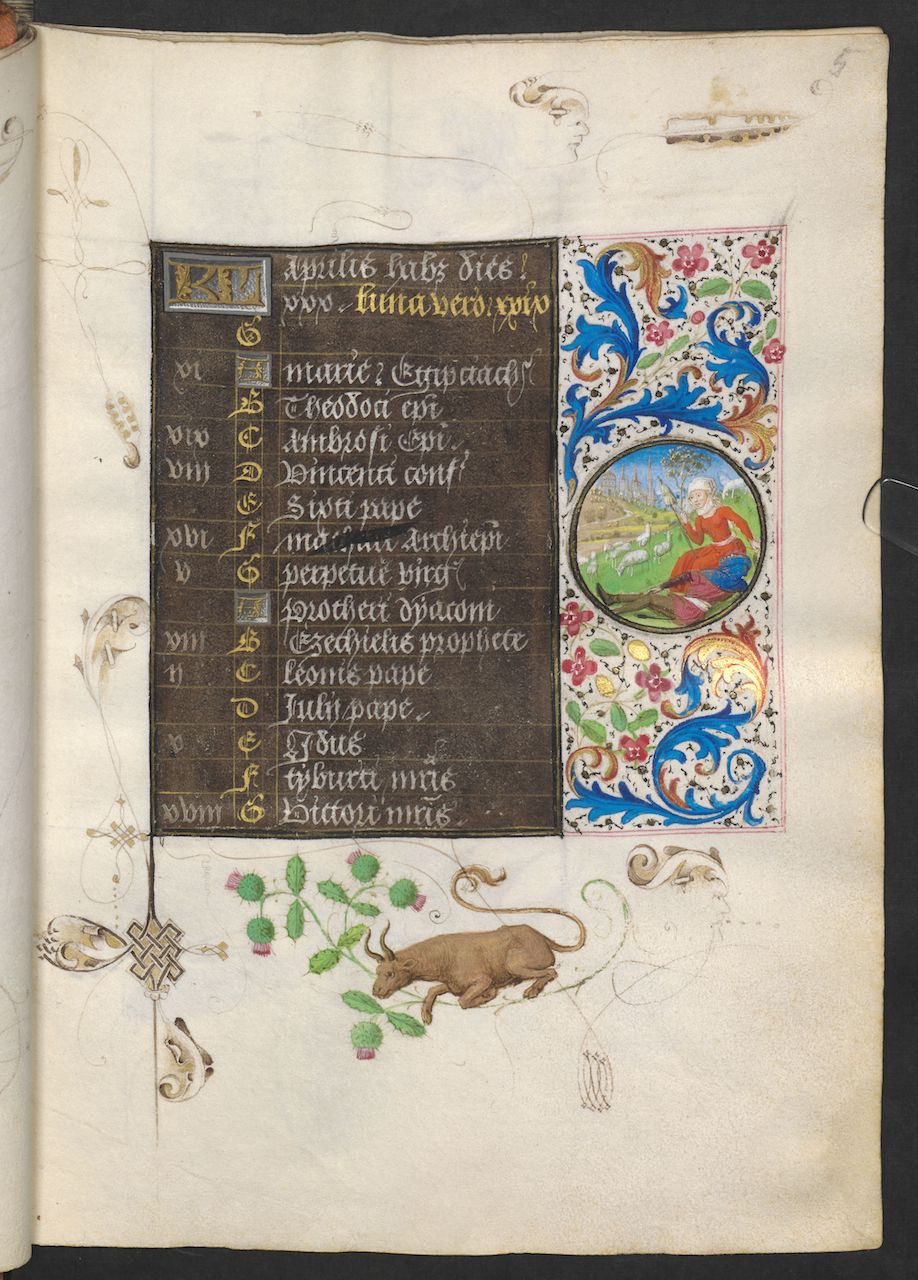 5
KL Aprilis habz dies
xxx. luna vero xxix
G
xi A marie Egipciach
B Theodoci epi
xix C Ambrosi Epi
viii D Vincenti conf
E Sixti pape
xvi F machari Archiepi
v G perpetue virg
A Protheri dyaconi
xiii B Ezechielis prophete
ii C leonis pape
D Julij pape.
x E Ydus
F tyburti mris
xviii G Victori mris